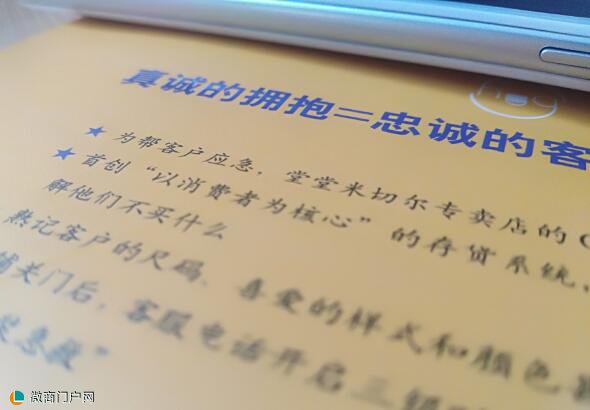 真诚的拥抱=忠诚的客
★ 为帮客户应急，堂堂米切尔专卖店的C
★ 首创“以消费者为核心”的存货系统，
解他们不买什么
熟记客户的尺码、喜爱的样式和颜色
铺关门后，客服电话开启三
急救”
微商门户网